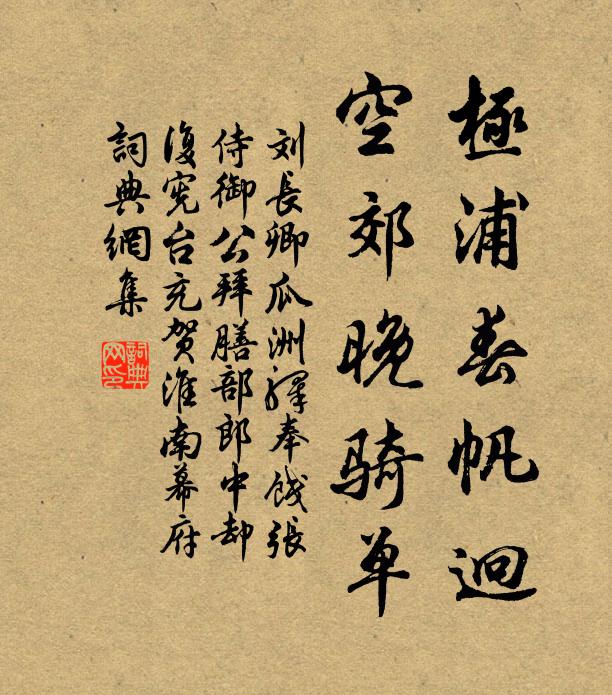 極浦春帆迴
空郊晚騎单
刘長卿瓜洲驛奉餞張
侍御公拜膳部郎中却
復宪台充贺淮南幕府
詞典網集
詞典
网印